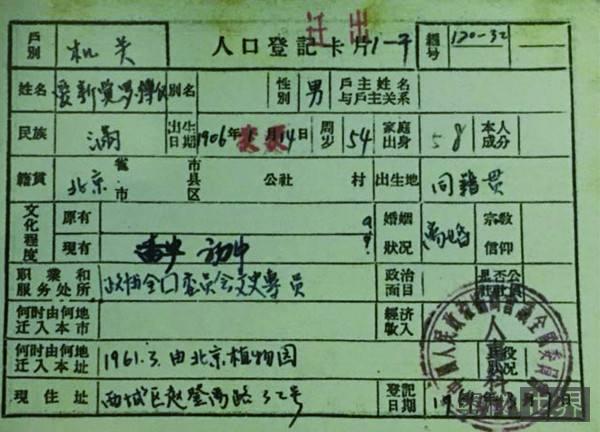 戶別 机关 人口登記卡片 1-干 迁出 編号 120-32
姓名 愛新覺罗 別名 性別 男 戶主姓名与戶主关系
民族 滿 出生日期 1906年 月14日 周岁 54 家庭出身 本人成分
籍貫 北京 省市 市县区 公社 村 出生地 同籍贯
文化程度 原有 婚姻狀況 宗教信仰
現有 初中
职業和服务处所 政协全囗委员会文史專员 政治面目 是否公社社員
何时由何地迁入本市 經济收入
何时由何地迁入本址 1961.3.由北京植物园
現住址 西城区赵登禹路32号 登記日期
人事科